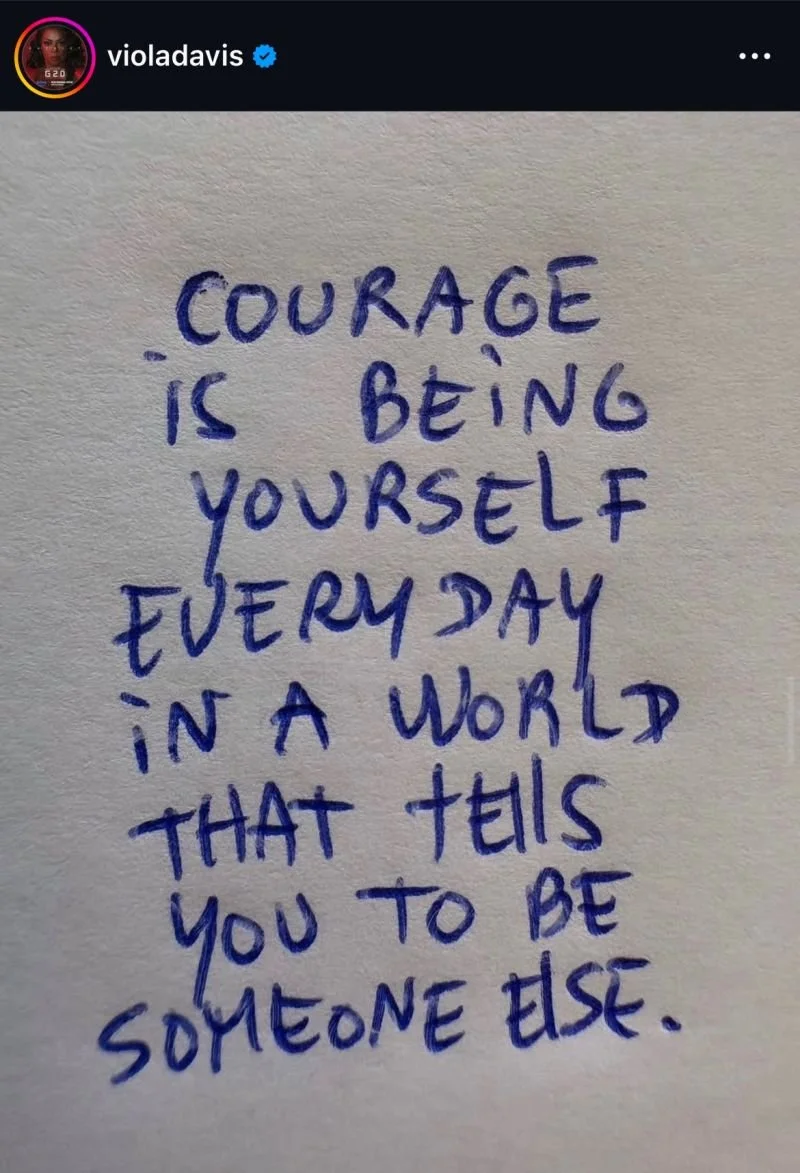 violadavis
G20
COURAGE
iS BEiNG
YOURSELF
EVERYDAY
iN A WORLD
THAT tEllS
YOU TO BE
SOMEONE ElSE.